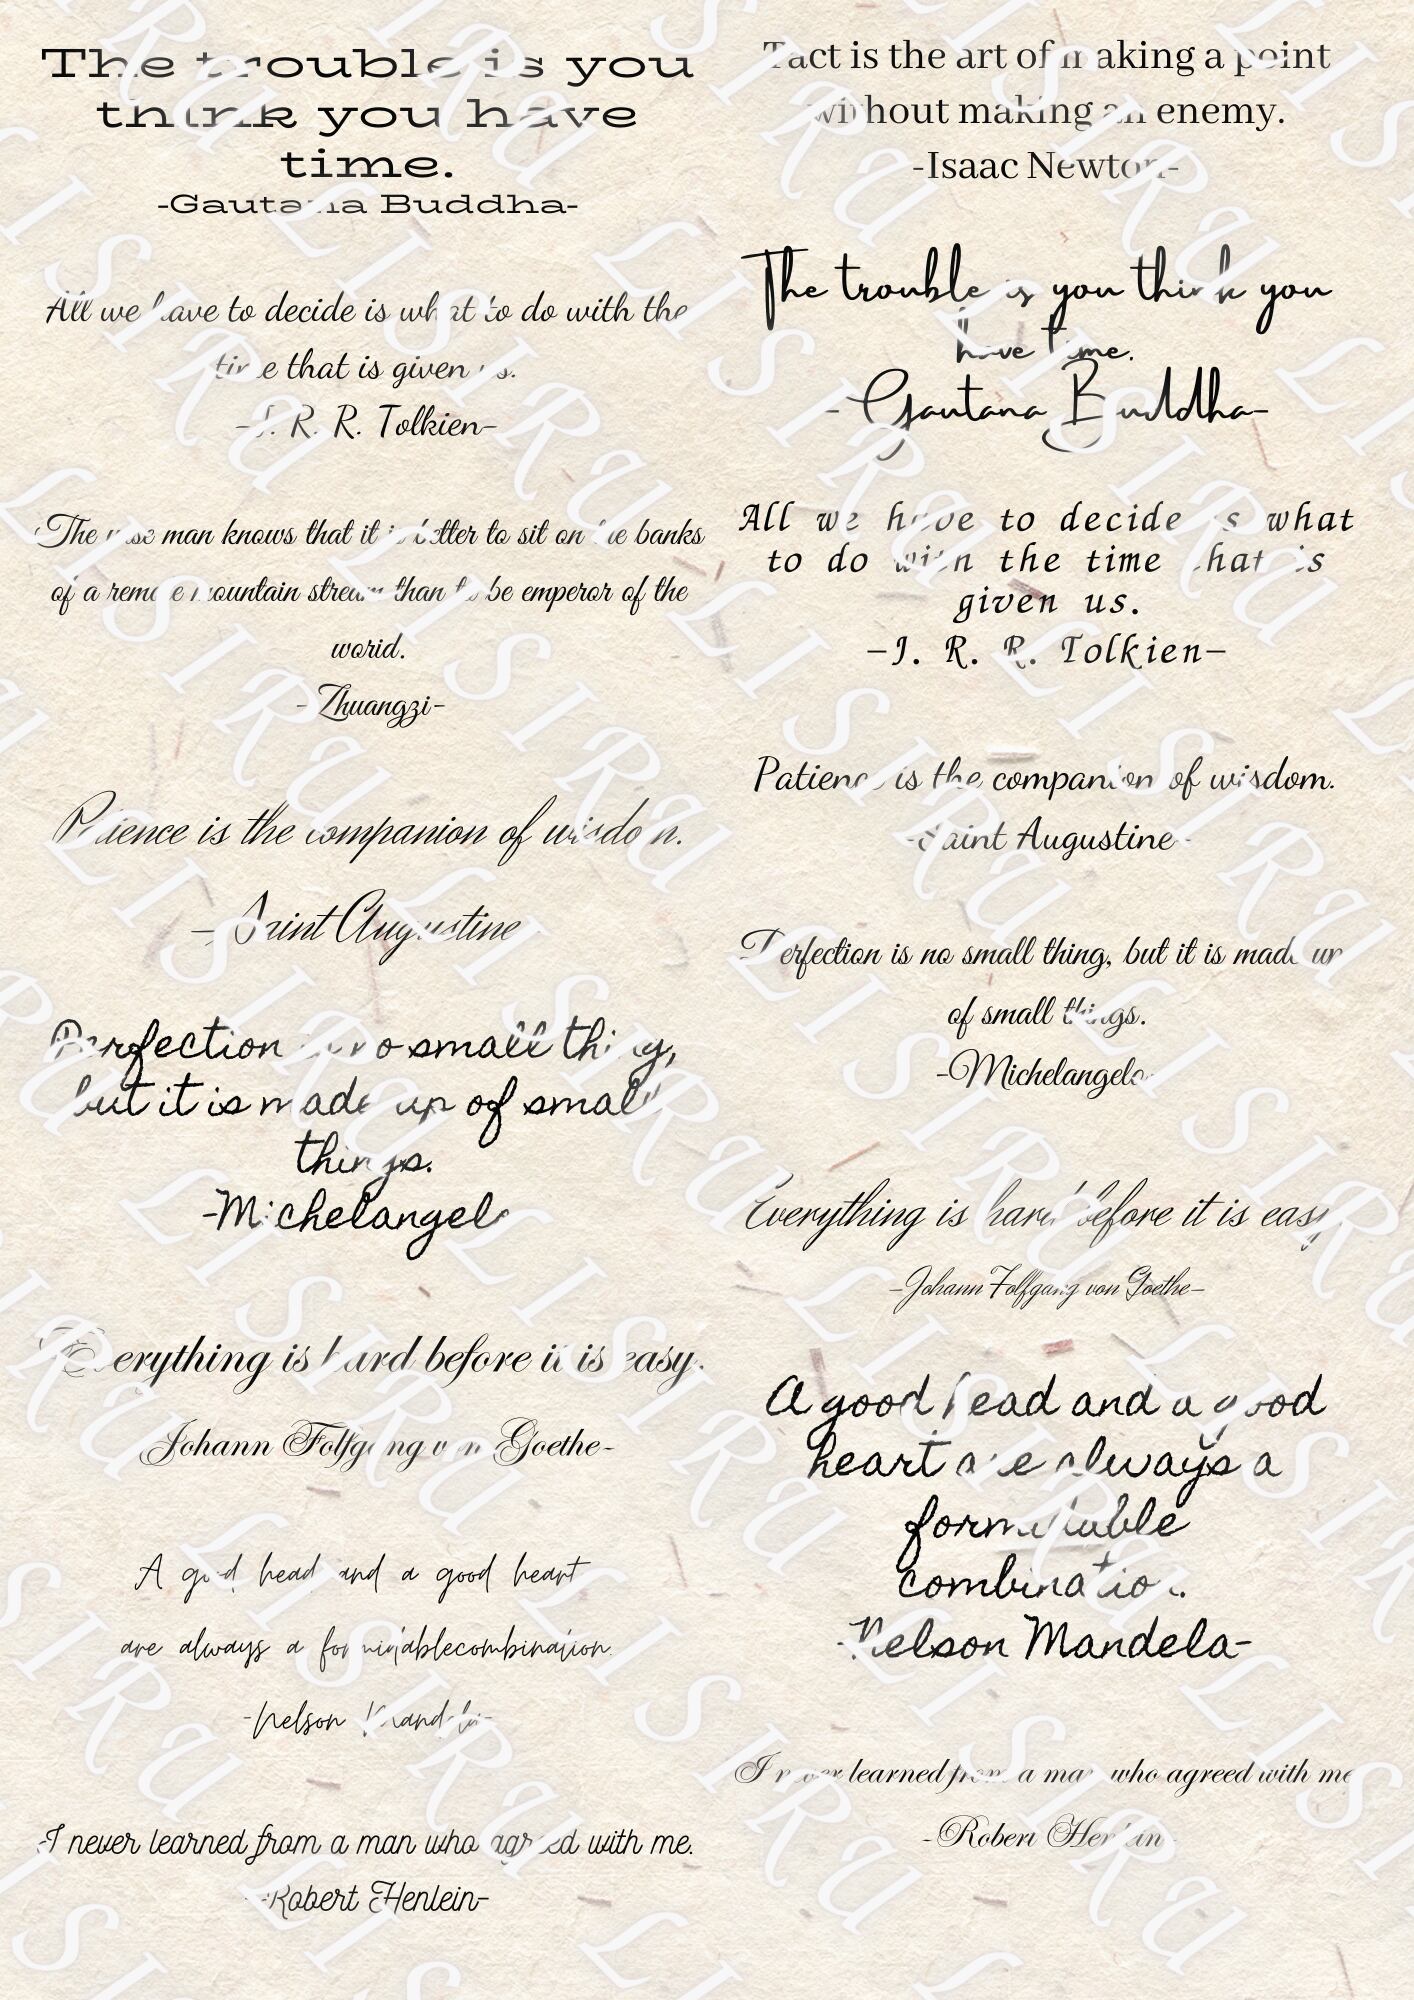 The trouble is you
think you have
time.
-Gautama Buddha-
All we have to decide is what to do with the
time that is given us.
-J. R. R. Tolkien-
The wise man knows that it is better to sit on the banks
of a remote mountain stream than to be emperor of the
world.
- Zhuangzi-
Patience is the companion of wisdom.
-Saint Augustine
Perfection is no small thing,
but it is made up of small
things.
-Michelangelo
Everything is hard before it is easy.
Johann Folfgang von Goethe-
A good head and a good heart
are always a formidablecombination.
-Nelson Mandela-
I never learned from a man who agreed with me.
-Robert Henlein-
Tact is the art of making a point
without making an enemy.
-Isaac Newton-
The trouble is you think you
have time.
-Gautana Buddha-
All we have to decide is what
to do with the time that is
given us.
-J. R. R. Tolkien-
Patience is the companion of wisdom.
-Saint Augustine-
Perfection is no small thing, but it is made up
of small things.
-Michelangelo
Everything is hard before it is easy
-Johann Folfgang von Goethe-
A good head and a good
heart are always a
formidable
combination.
-Nelson Mandela-
I never learned from a man who agreed with me
-Robert Henlein-
LISIRU